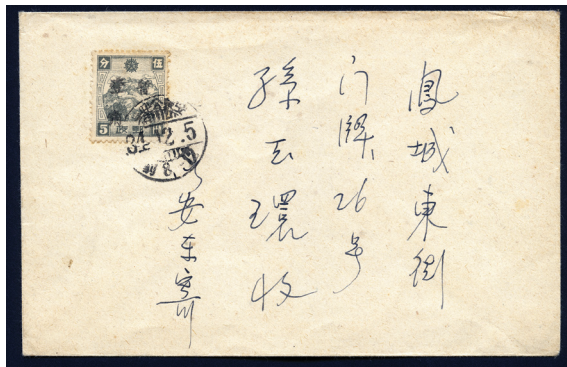 鳳城東街
门牌26号
孫玉環收
安东寄
分 伍
5
12.5